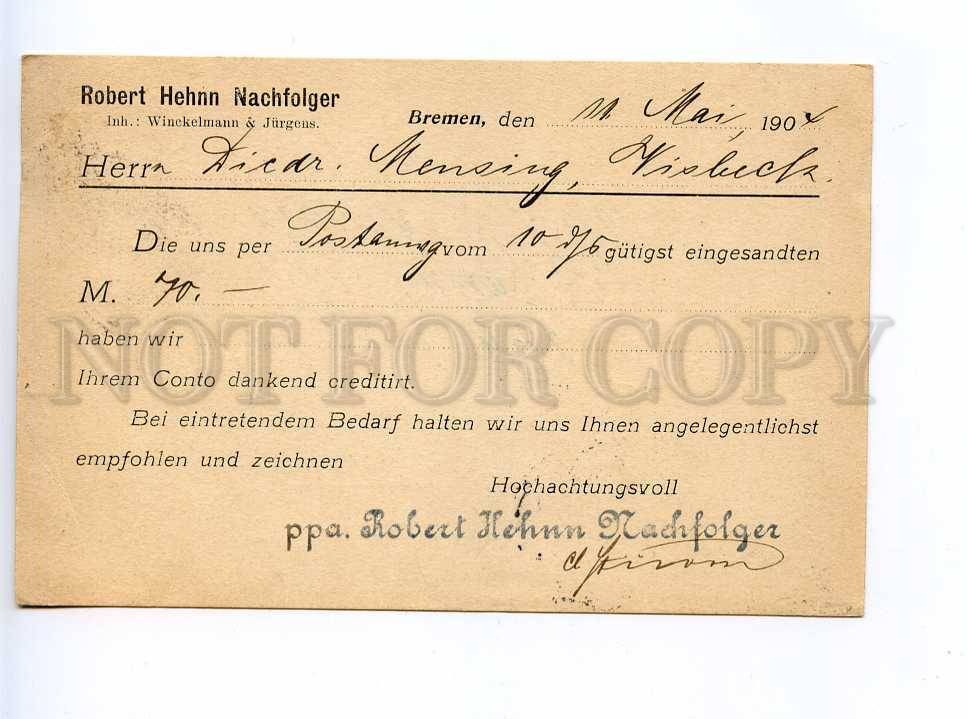 Robert Hehnn Nachfolger
Inh.: Winckelmann & Jürgens.
Bremen, den 11. Mai 1904
Herrn Diedr. Mensing, Visbeck.
Die uns per Postanwg vom 10 d/5 gütigst eingesandten
M. 70.—
haben wir
Ihrem Conto dankend creditirt.
Bei eintretendem Bedarf halten wir uns Ihnen angelegentlichst
empfohlen und zeichnen
Hochachtungsvoll
ppa. Robert Hehnn Nachfolger
NOT FOR COPY